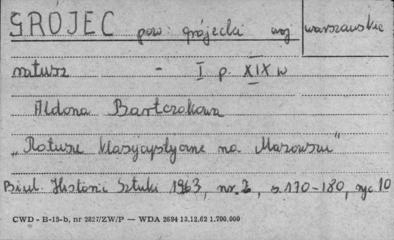 GRÓJEC pow. grójecki woj warszawskie
ratusz - I p. XIX w
Aldona Bartczakowa
„Ratusze klasycystyczne na Mazowszu"
Biul. Historii Sztuki 1963, nr. 2, s. 170-180, ryc 10
CWD - B-15-b, nr 2827/ZW/P — WDA 2694 13.12.62 1.700.000